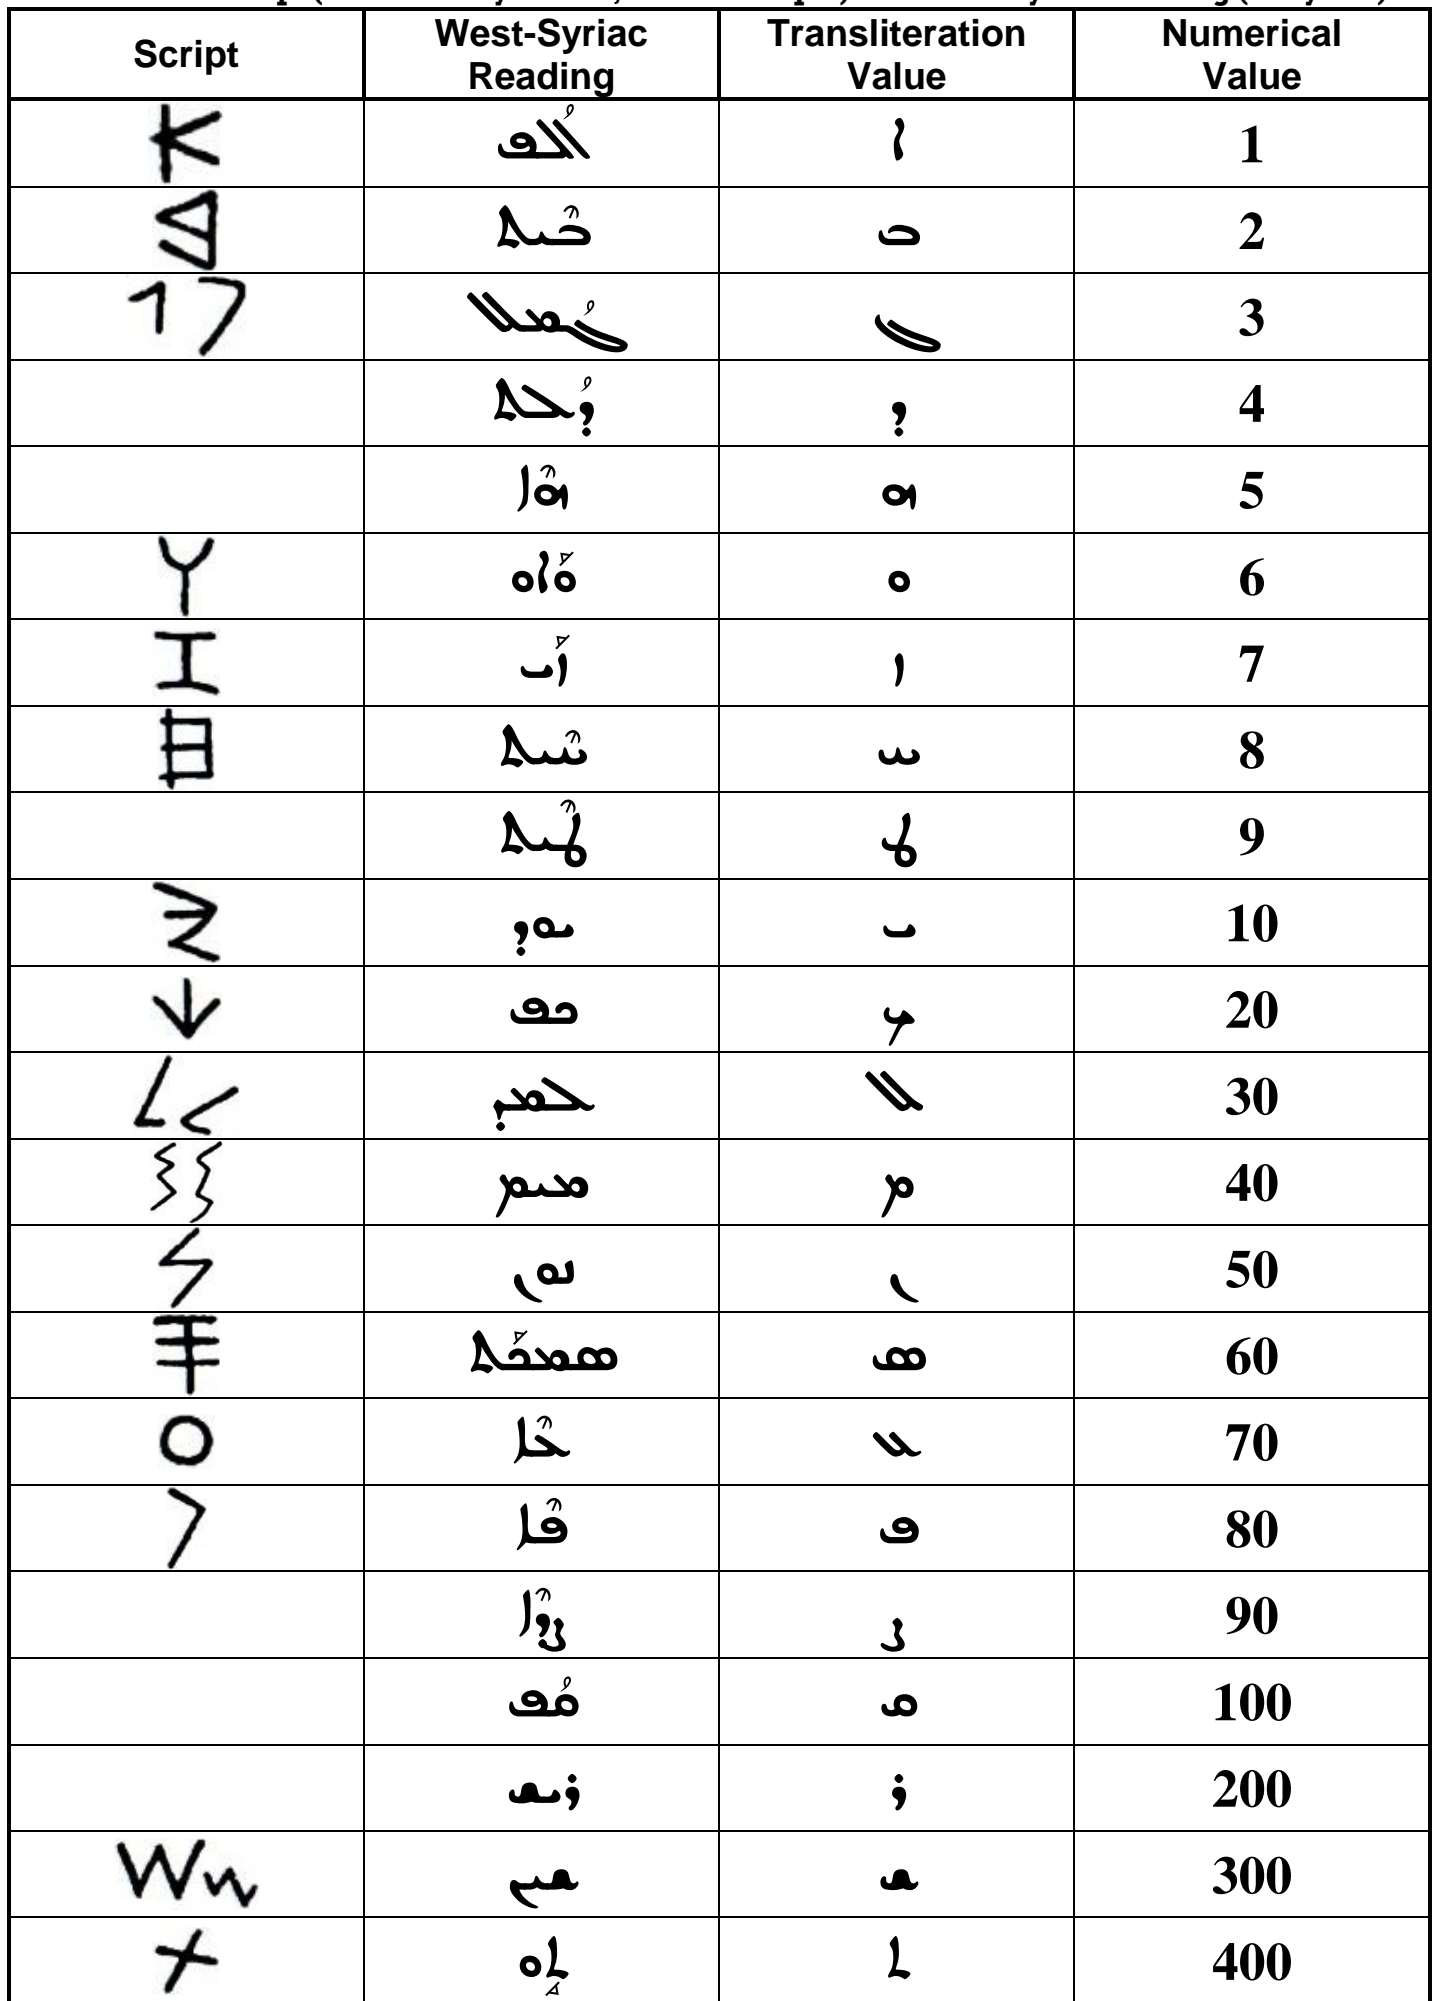 Script West-Syriac Reading Transliteration Value Numerical Value
𐤀 ܐܳܠܰܦ ܐ 1
𐤁 ܒܶܝܬ ܒ 2
𐤂 ܓܳܡܰܠ ܓ 3
ܕܳܠܰܬ ܕ 4
ܗܶܐ ܗ 5
𐤅 ܘܰܐܘ ܘ 6
𐤆 ܙܰܝ ܙ 7
𐤇 ܚܶܝܬ ܚ 8
ܛܶܝܬ ܛ 9
𐤉 ܝܘܕ ܝ 10
𐤊 ܟܦ ܟ 20
𐤋 ܠܡܕ ܠ 30
𐤌 ܡܝܡ ܡ 40
𐤍 ܢܘܢ ܢ 50
𐤎 ܣܡܟܰܬ ܣ 60
𐤏 ܥܶܐ ܥ 70
𐤐 ܦܶܐ ܦ 80
ܨܕܶܐ ܨ 90
ܩܳܦ ܩ 100
ܪܝܫ ܪ 200
𐤔 ܫܝܢ ܫ 300
𐤕 ܬܰܘ ܬ 400